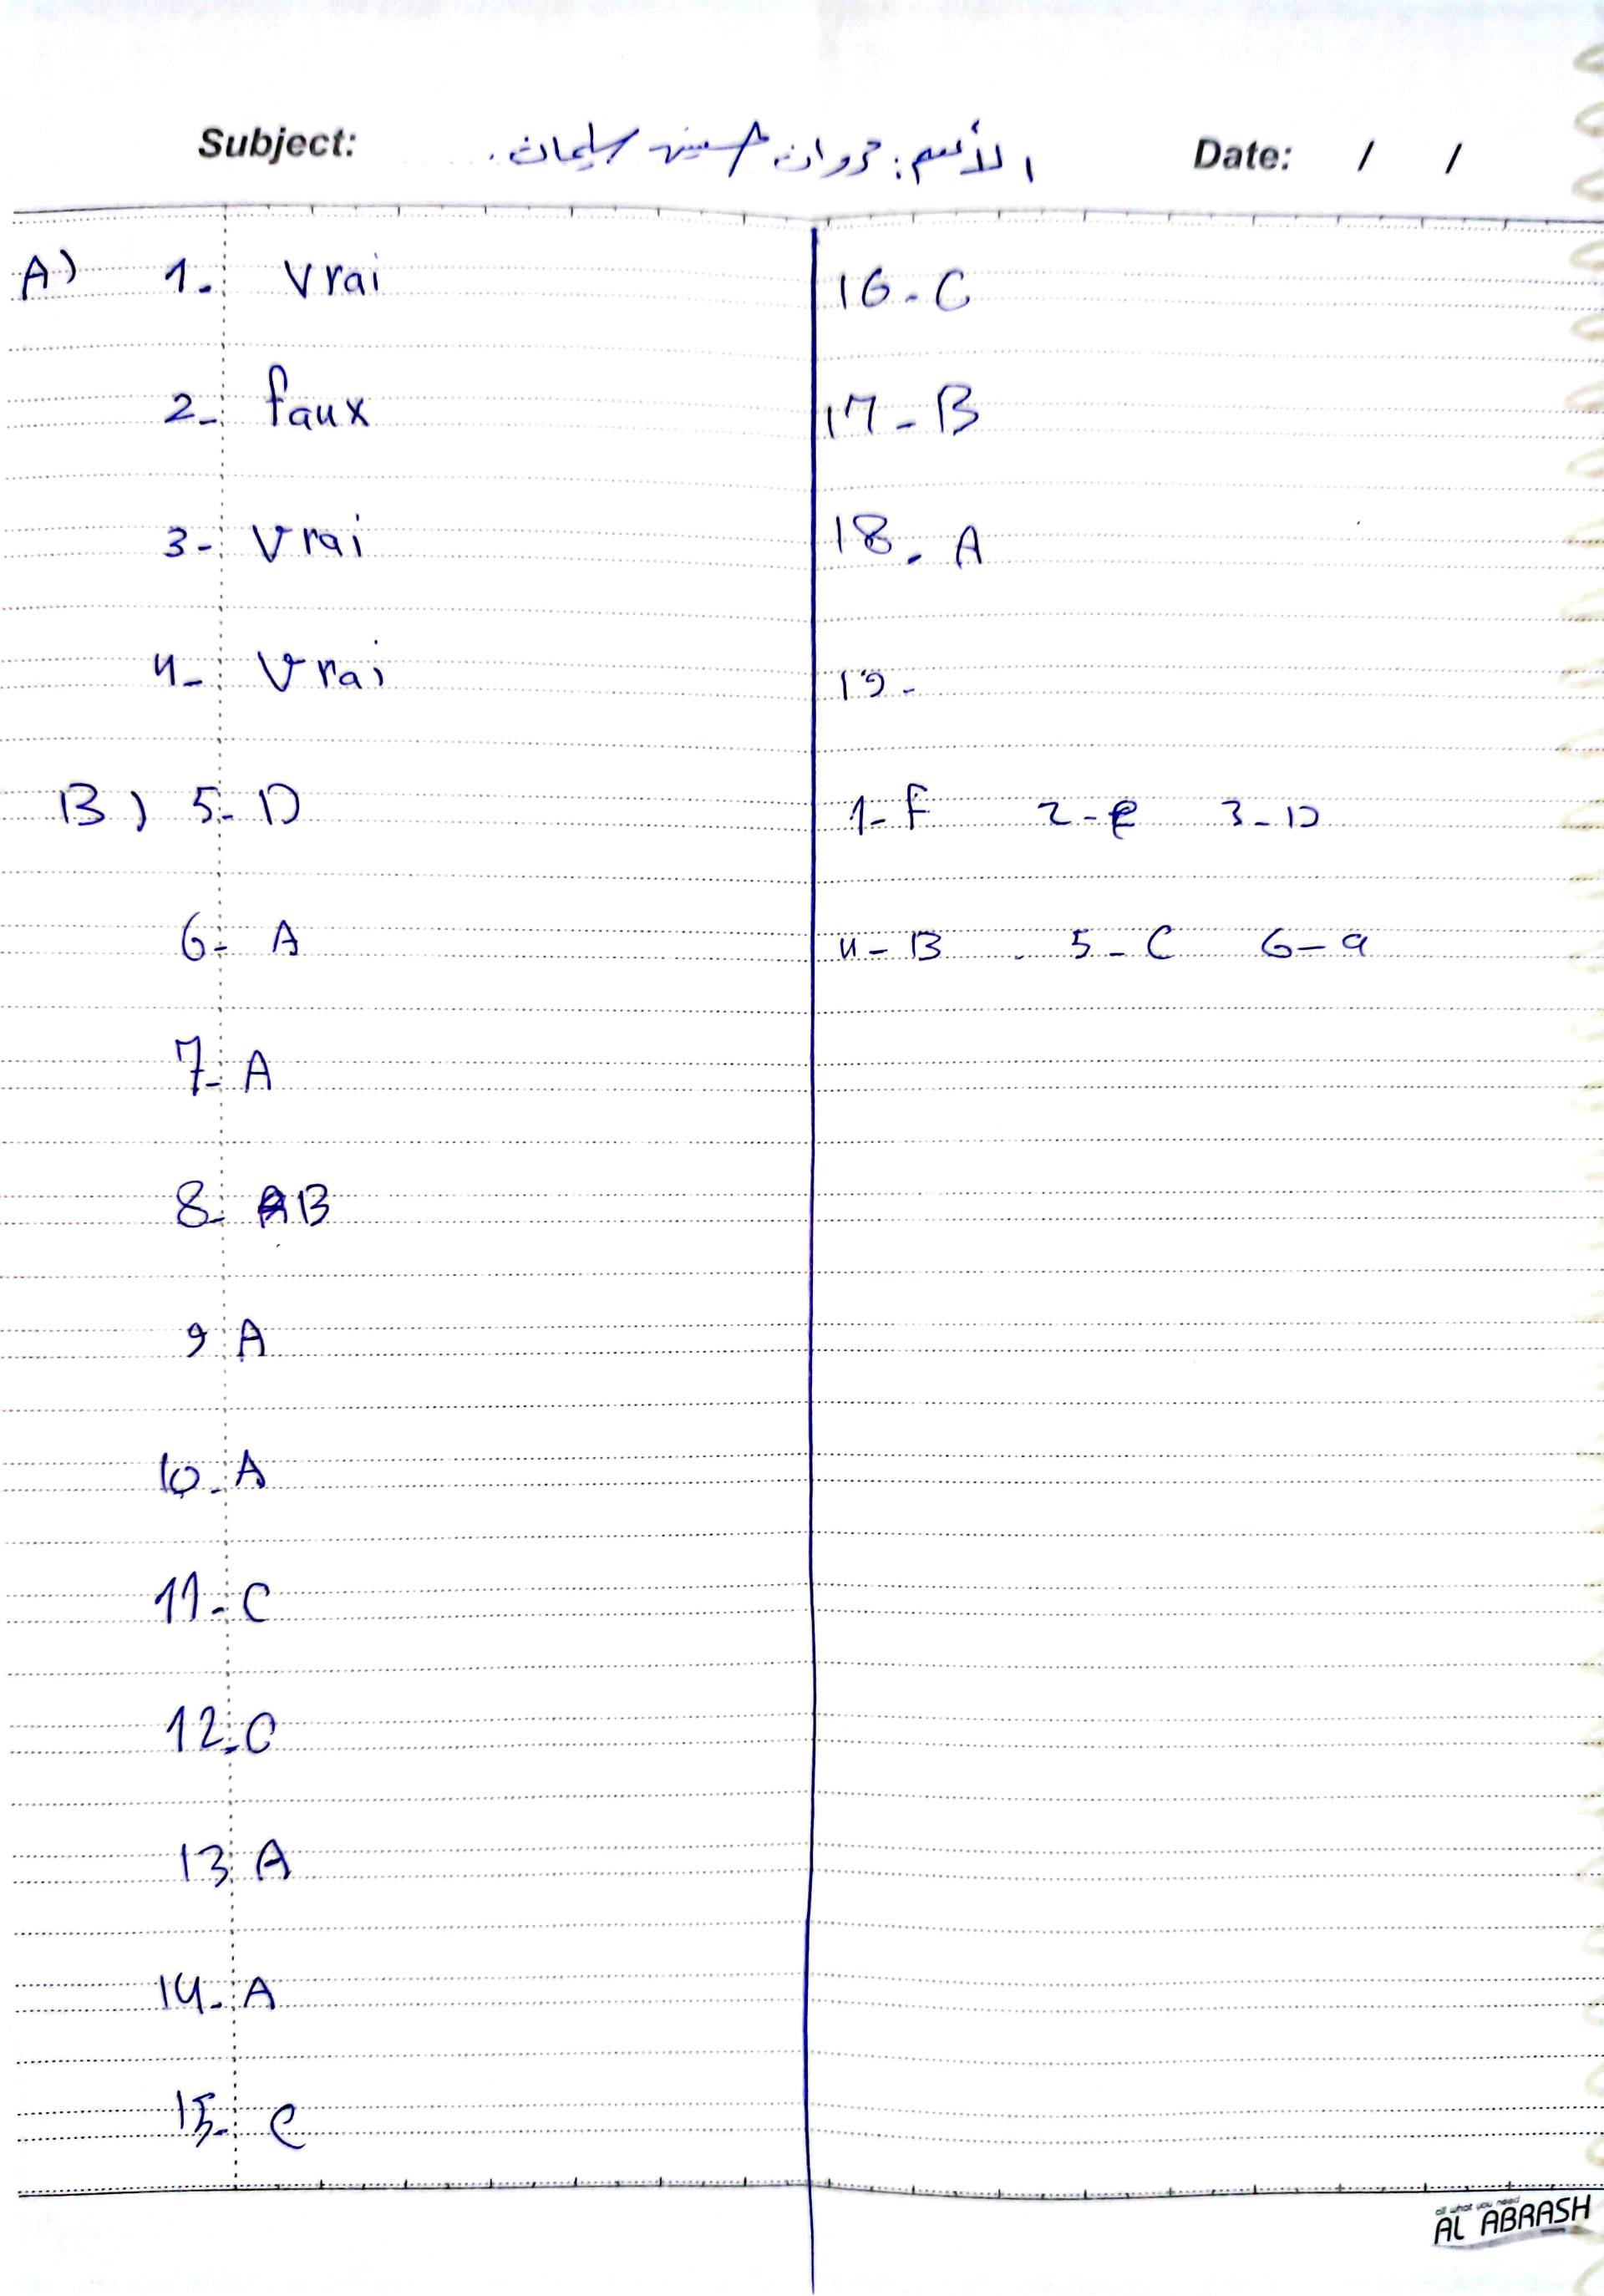 Subject: الأسم: مروان حسين سليمان. Date: / /
A) 1. Vrai
2- faux
3- Vrai
4- Vrai
B) 5- D
6- A
7- A
8- B
9 A
10- A
11- C
12- C
13 A
14- A
15- C
16- C
17- B
18- A
19-
1- F 2- e 3- D
4- B 5- C 6- a
all what you need
AL ABRASH